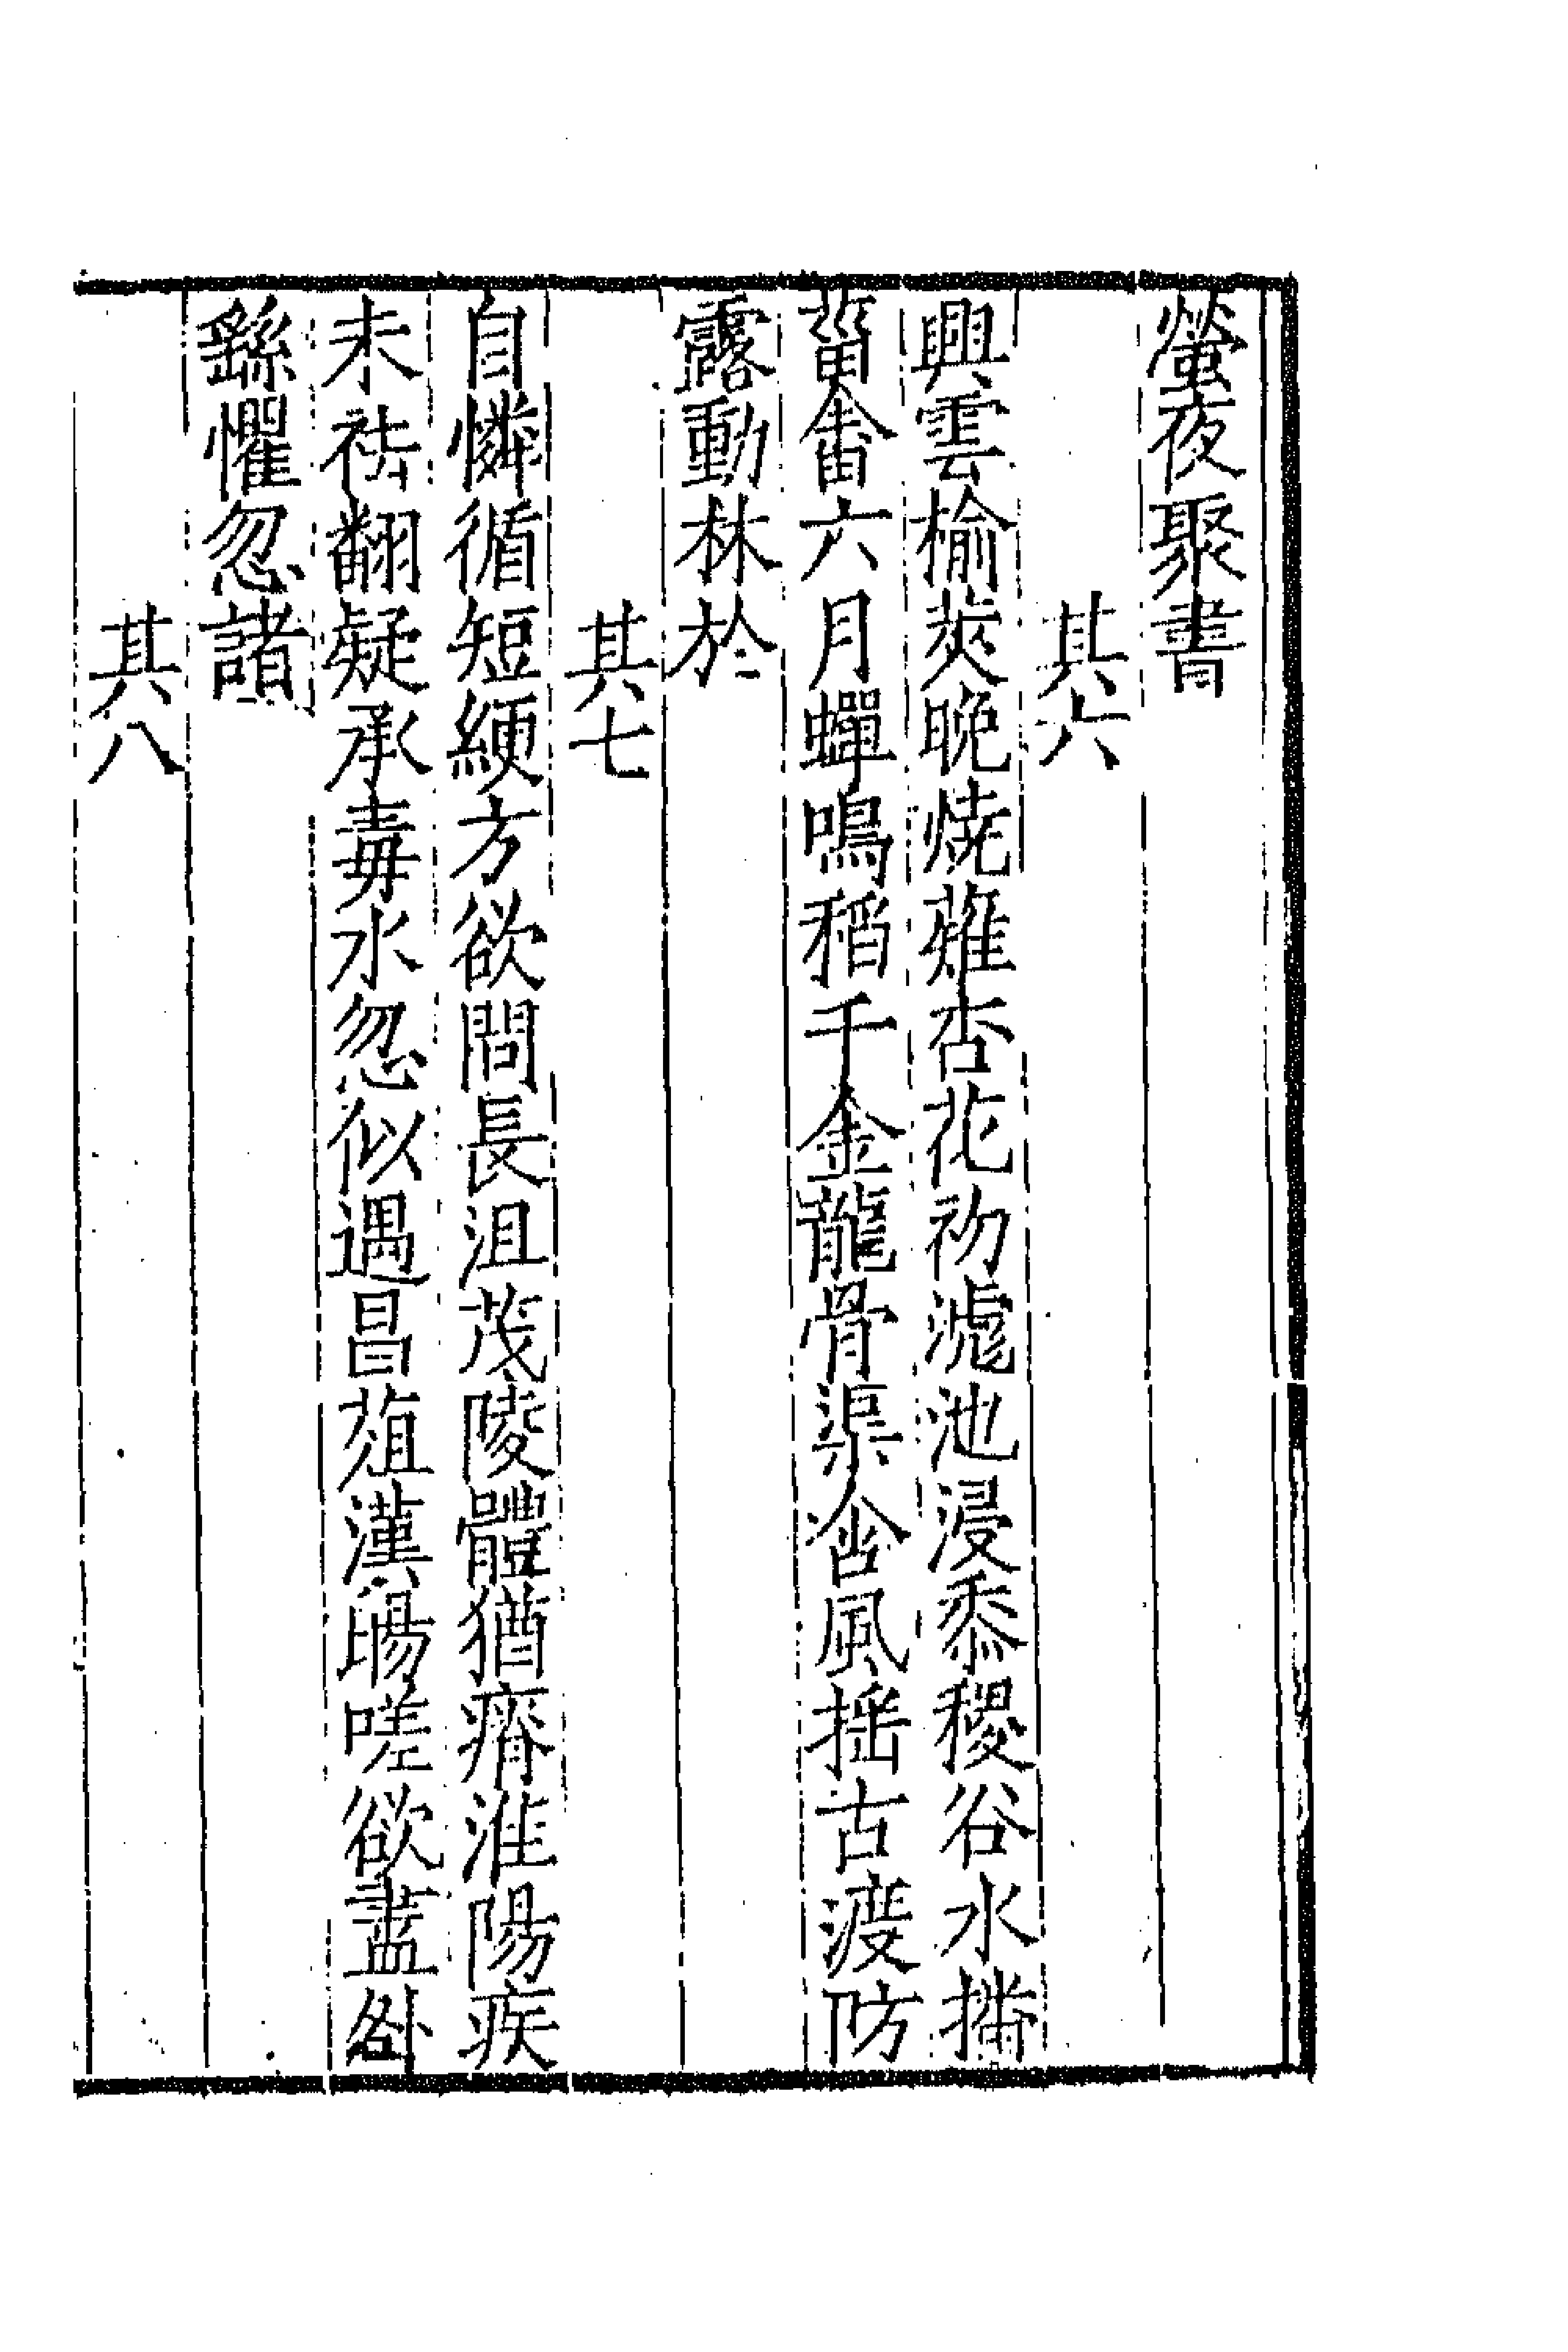 螢夜聚書
其六
興雲榆莢晚燒薙杏花初滮池浸黍稷谷水播
菑畬六月蟬鳴稻千金龍骨渠含風搖古渡防
露動林於
其七
自憐循短綆方欲問長沮茂陵體猶瘠淮陽疾
未祛翻疑承毒水忽似遇昌菹漢陽嗟欲盡
繇懼忽諸
其八